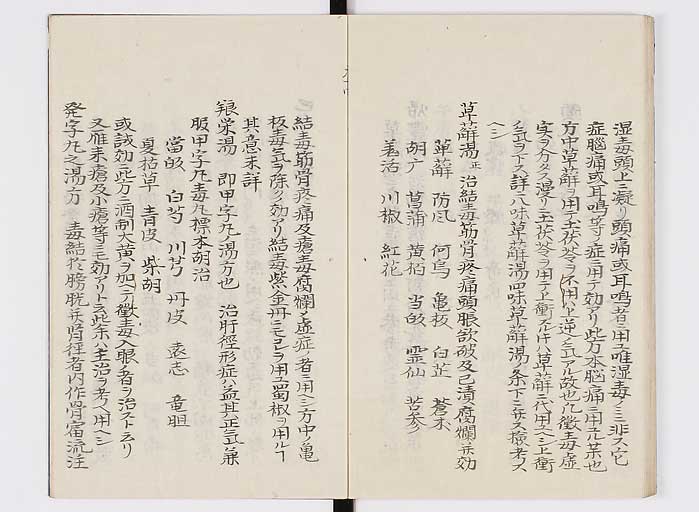 湿毒頭上ニ凝リ頭痛或耳鳴者ニ用ユ唯湿毒ノミニ非ス它
症脳痛或耳鳴等ノ症ニ用テ効アリ此方本脳痛ニ用ユル某也
方中草薢ヲ用テ土茯苓ヲ不用ハ上逆ノ気アル故也凡黴毒虚
実ヲ分タス漫リニ土茯苓ヲ用テ上衝スル片ハ草薢ニ代用ヘシ上衝
気ヲ下ス詳ニ八味草薢湯四味草薢湯ノ条下ニ弁ス擦考ス
ヘシ
草薢湯 正 治結毒筋骨疼痛頭脹欲破及已潰腐爛並効
草薢 防风 何烏 亀板 白芷 蒼朮
胡广 菖蒲 黄柏 当皈 霊仙 苦参
羗活 川椒 紅花
結毒筋骨疼痛及瘡毒腐爛ノ虚症ノ者ニ用ユ方中ノ亀
板毒気ヲ除ク効アリ結毒紫金丹ニモコレヲ用ユ蜀椒ヲ用ルヿ
其意未詳
狼栄湯 即甲字凢湯方也 治肝徑形症ハ益其正気兼
服甲字凢毒凢標本胡治
當皈 白芍 川芎 丹皮 袁志 竜胆
夏枯草 青皮 柴胡
或試効ニ此方ニ酒制大黄ヲ加ヘテ黴毒入眼ノ者ヲ治スト云リ
又雁来瘡及小瘡等ニモ効アリト云此朱ハ主治ヲ考ヘ用ヘシ
発字凢之湯方 毒結於膀胱並腎徑者内作骨𤺋流注